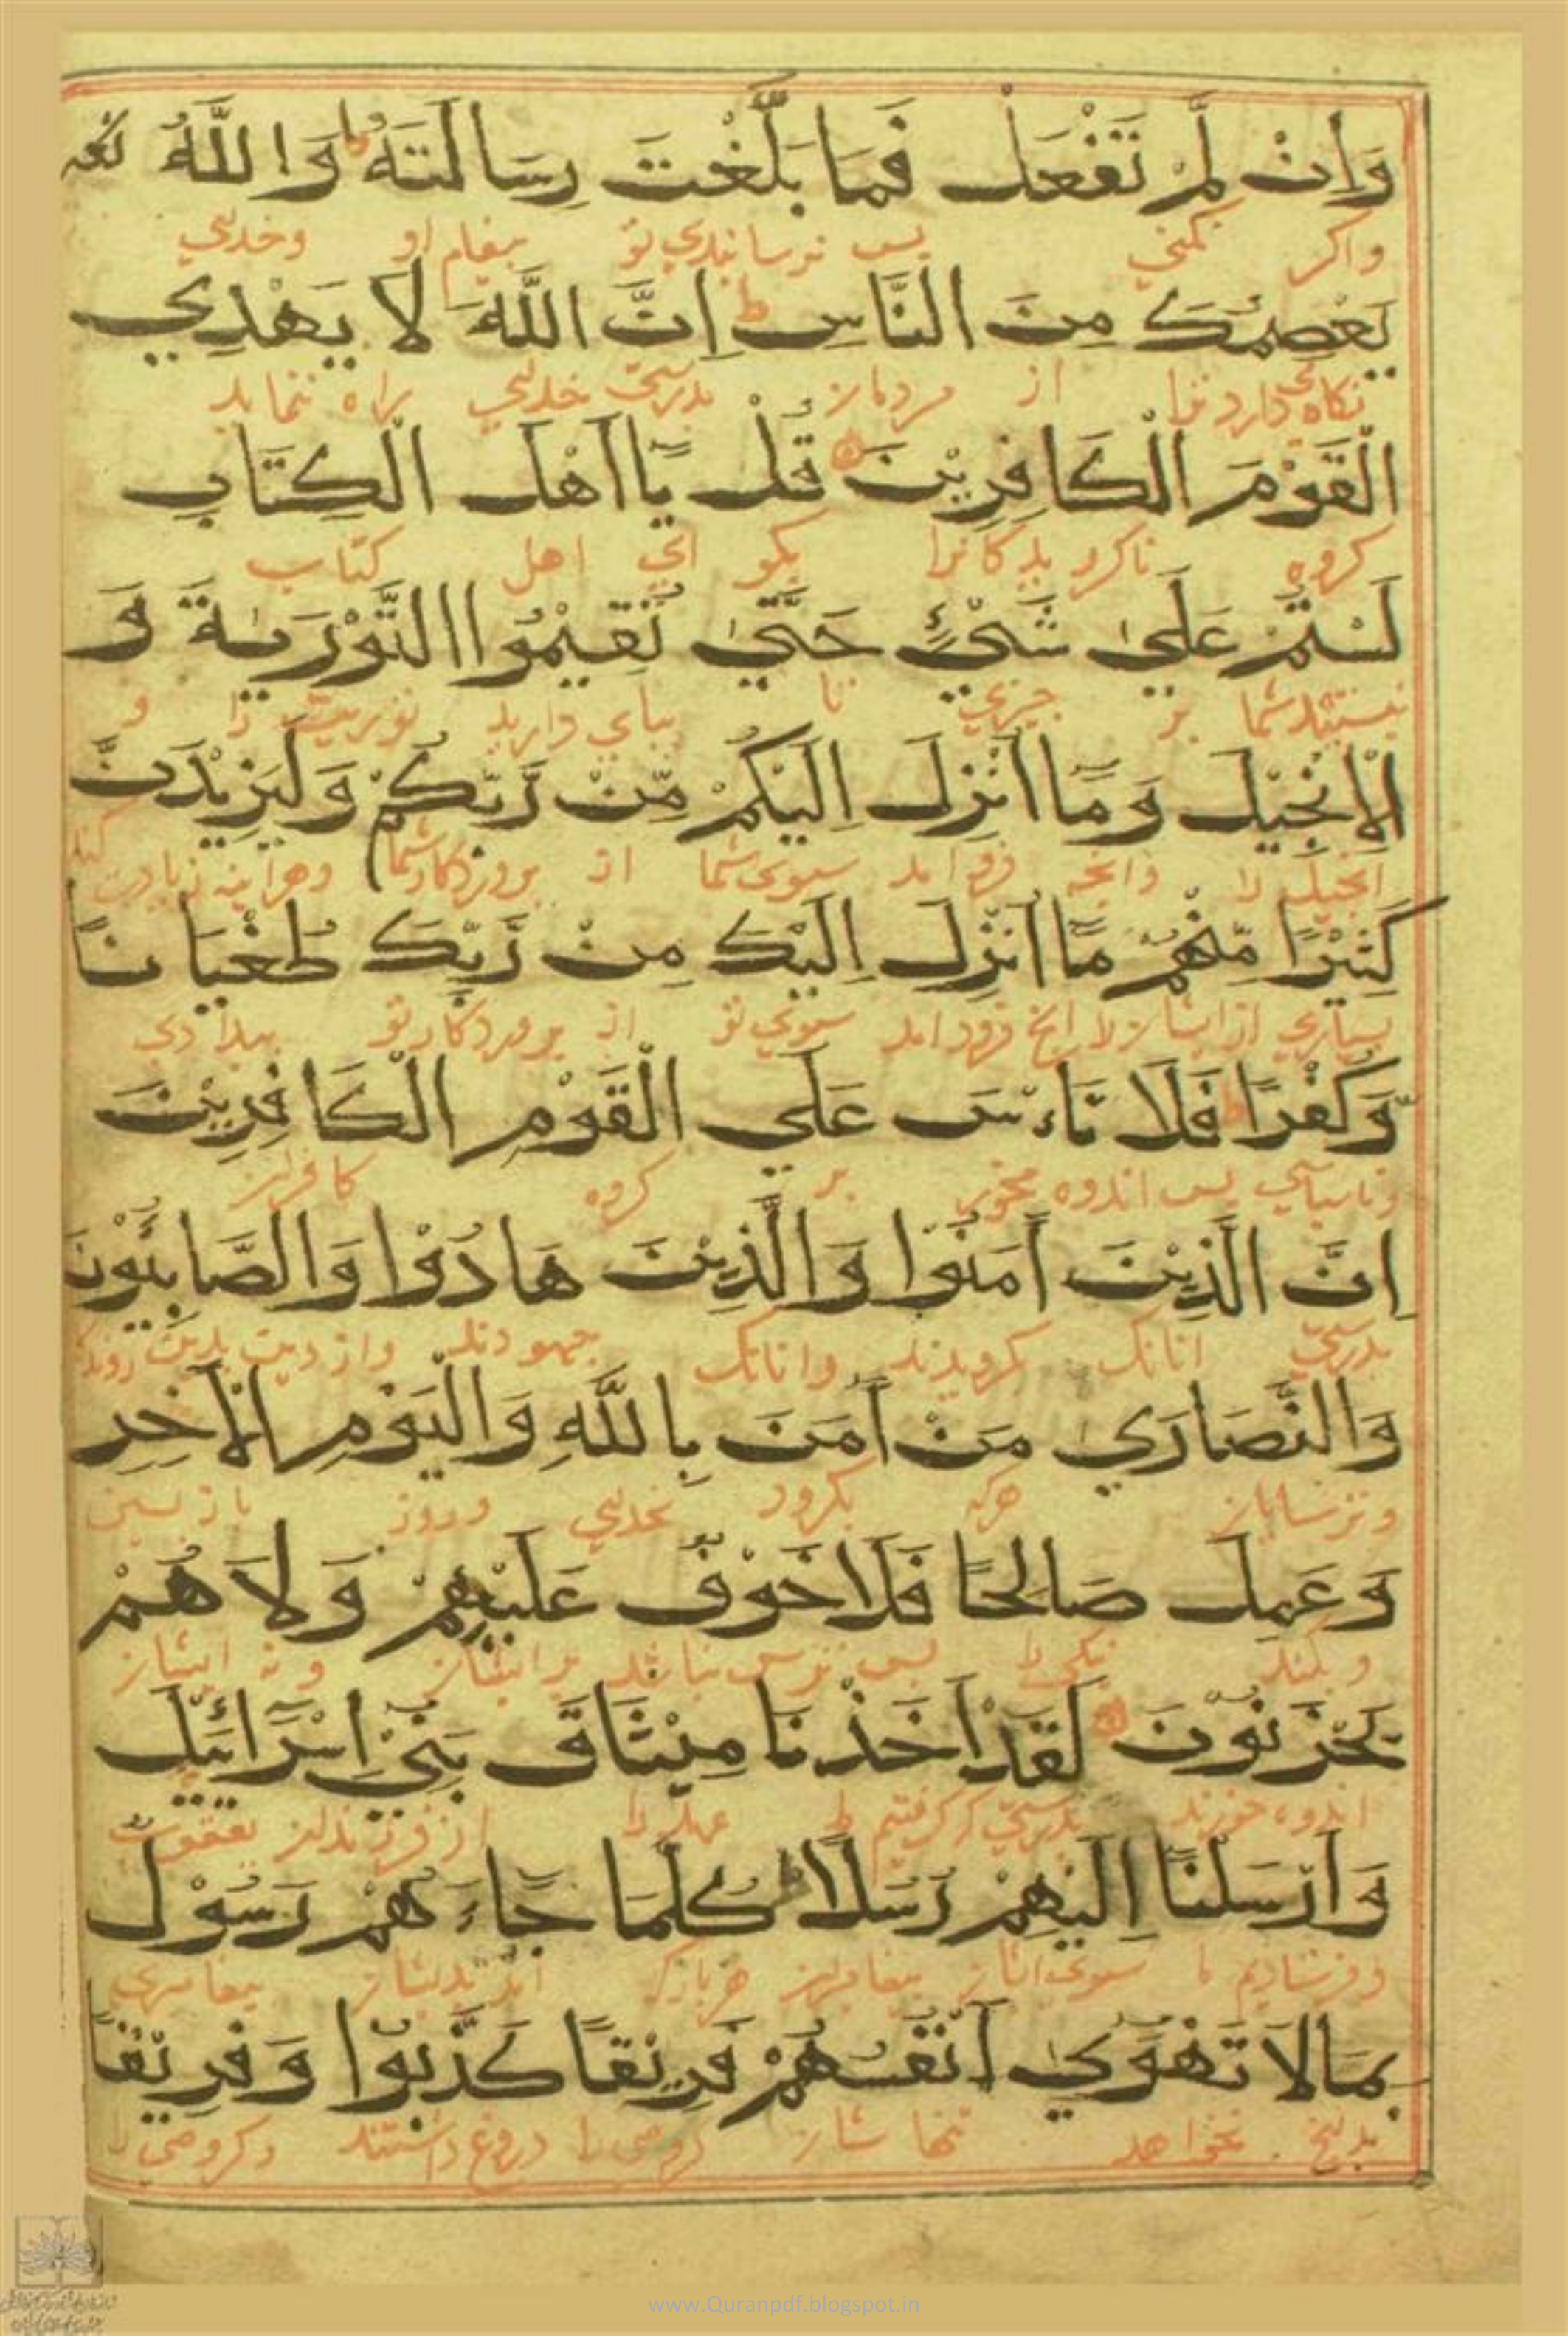 وَاِنْ لَمْ تَفْعَلْ فَمَا بَلَّغْتَ رِسَالَتَهُ وَاللَّهُ
واكر نكني پس نرسانيدي تو پيغام او وخداي
يَعْصِمُكَ مِنَ النَّاسِ ط اِنَّ اللَّهَ لَا يَهْدِي
نكاه دارد ترا از مردمان بدرستي خداي راه ننمايد
الْقَوْمَ الْكَافِرِيْنَ قُلْ يَا اَهْلَ الْكِتَابِ
كروه ناكرويدكانرا بكو اي اهل كتاب
لَسْتُمْ عَلَيٰ شَيْءٍ حَتَّيٰ تُقِيْمُوا التَّوْرَيٰةَ وَ
نيستيد شما بر چيزي تا بپاي داريد توريت را و
الْاِنْجِيْلَ وَمَا اُنْزِلَ اِلَيْكُمْ مِّنْ رَّبِّكُمْ وَلَيَزِيْدَنَّ
انجيل را وانچه فرود امد سوي شما از پروردكار شما وهراينه زيادت كند
كَثِيْرًا مِّنْهُمْ مَّا اُنْزِلَ اِلَيْكَ مِنْ رَّبِّكَ طُغْيَانًا
بسياري از ايشان را انچ فرود امد سوي تو از پروردكار تو بيدادي
وَّكُفْرًا ط فَلَا تَاءْسَ عَلَي الْقَوْمِ الْكَافِرِيْنَ
وناسپاسي پس اندوه مخور بر كروه كافران
اِنَّ الَّذِيْنَ آمَنُوْا وَالَّذِيْنَ هَادُوْا وَالصَّابِئُوْنَ
بدرستي انانك كرويدند وانانك جهودند واز دين بدين روندكا
وَالنَّصَارَيٰ مَنْ آمَنَ بِاللَّهِ وَالْيَوْمِ الْآخِرِ
وترسايان هركه بكرود بخداي وروز بازپسين
وَعَمِلَ صَالِحًا فَلَا خَوْفٌ عَلَيْهِمْ وَلَا هُمْ
وبكند نيكي را پس ترس نباشد بر ايشان ونه ايشان
يَحْزَنُوْنَ لَقَدْ اَخَذْنَا مِيْثَاقَ بَنِيْ اِسْرَائِيْلَ
اندوه خورند بدرستي كه كرفتيم عهد را از فرزندان يعقوب
وَاَرْسَلْنَا اِلَيْهِمْ رُسُلًا كُلَّمَا جَاءَهُمْ رَسُوْلٌ
وفرستاديم ما سوي ايشان پيغامبران هر باركه امد بديشان پيغامبري
بِمَا لَا تَهْوَيٰ اَنْفُسُهُمْ فَرِيْقًا كَذَّبُوْا وَفَرِيْقًا
بدانچ نخواهد تنهاشان كروهي را دروغ داشتند وكروهي را
www.Quranpdf.blogspot.in